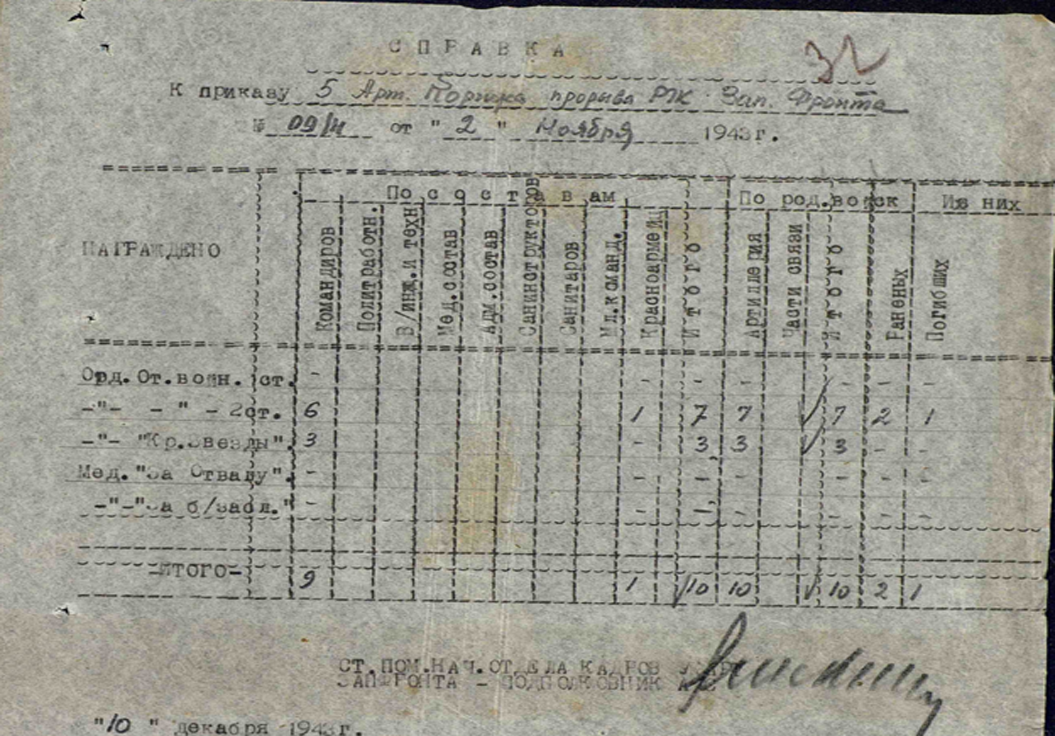 СПРАВКА
32
К приказу 5 Арт. Корпуса прорыва РГК Зап. Фронта
№ 09/н от "2" Ноября 1943г.
НАГРАЖДЕНО По составам По род.войск Из них
Командиров Политработн. В/инж.и техн Мед.состав Адм.состав Санинструкторов Санитаров Мл.команд. Красноармейц Итого Артиллерия Части связи Итого Раненых Погибших
Орд.От.войн. ст. - - - - - - -
-"- - " - 2ст. 6 1 7 7 7 2 1
-"- "Кр.звезды". 3 - 3 3 3 - -
Мед."За Отвагу". - - - - - - -
-"-"За б/засл." - - - - - - -
-ИТОГО- 9 1 10 10 10 2 1
СТ.ПОМ.НАЧ.ОТДЕЛА КАДРОВ
ЗАПФРОНТА - ПОДПОЛКОВНИК
"10" декабря 1943г.